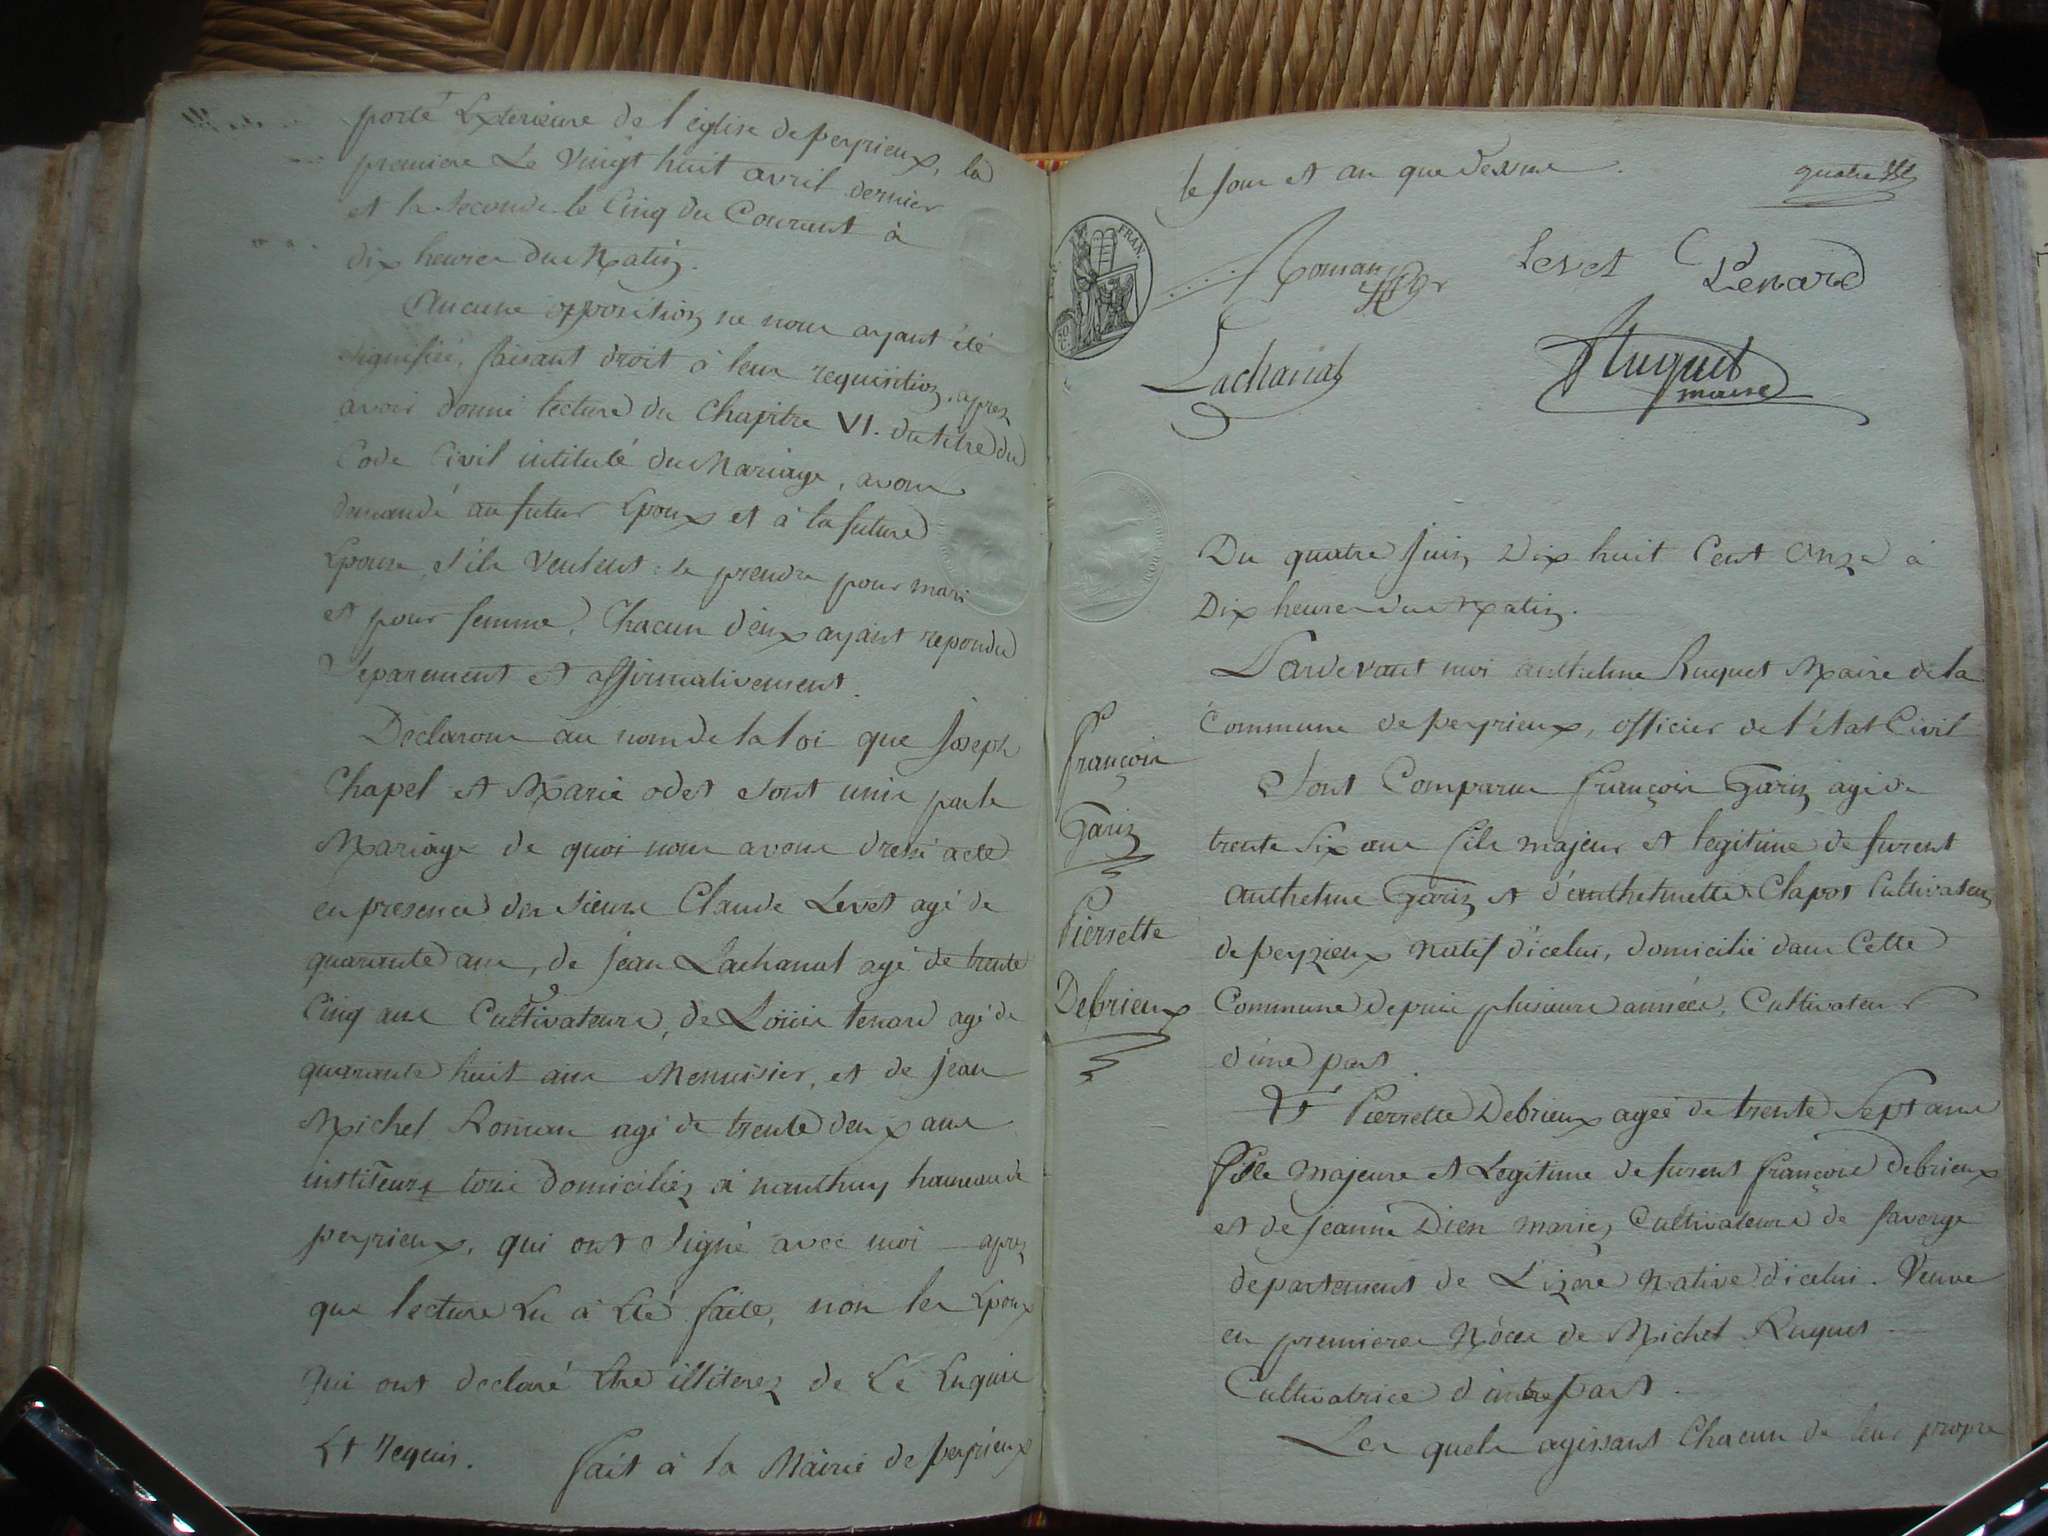 porte Exterieure de l'église de peyrieux, la
premiere Le Vingt huit avril dernier
et la seconde le Cinq du Courant à
dix heures du Matin.
Aucune opposition ne nous ayant été
signifiée, faisant droit à leur requisition, après
avoir donné lecture du Chapitre VI. du titre du
Code Civil intitulé du Mariage, avons
demandé au futur Epoux et à la future
Epouse, s'ils veulent se prendre pour mari
et pour femme, Chacun d'eux ayant repondu
separement et affirmativement.
Declarons au nom de la loi que Joseph
Chapel et Marie odet sont unis par le
Mariage de quoi nous avons dressé acte
en presence des sieurs Claude Levet agé de
quarante ans, de Jean Lachanal agé de trente
Cinq ans Cultivateurs, de Loüis tenard agé de
quarante huit ans Menuisier, et de Jean
Michel Roman agé de trente deux ans
instituteur tous domiciliez à nanthuy hameau de
peyrieux, qui ont signé avec moi après
que lecture En à Eté faite, non les Epoux
qui ont declaré Etre illiterez de Ce Enquis
Et requis. fait à la Mairie de peyrieux
le jour et an que dessus.
quatre
FRAN.
Roman
Levet
Tenard
Lachanal
Huguet
maire
Du quatre Juin Dix huit Cent Onze à
Dix heures du Matin.
Pardevant moi anthelme Huguet Maire de la
Commune de peyrieux, officier de l'état Civil
Sont Comparus françois Gariz agé de
trente six ans fils majeur et legitime de furent
anthelme Gariz et d'anthelmette Clapot Cultivateurs
de peyzieux natif d'icelui, domicilié dans Cette
Commune depuis plusieurs années, Cultivateur
d'une part.
Et Pierrette Debrieux agée de trente sept ans
fille majeure et Legitime de furent françois debrieux
et de jeanne Dien mariez Cultivateurs de faverge
departement de L'izere native d'icelui. Veuve
en premieres Nôces de Michel Huguet
Cultivatrice d'autre part.
Les quels agissant Chacun de leur propre
françois
Gariz
Pierrette
Debrieux